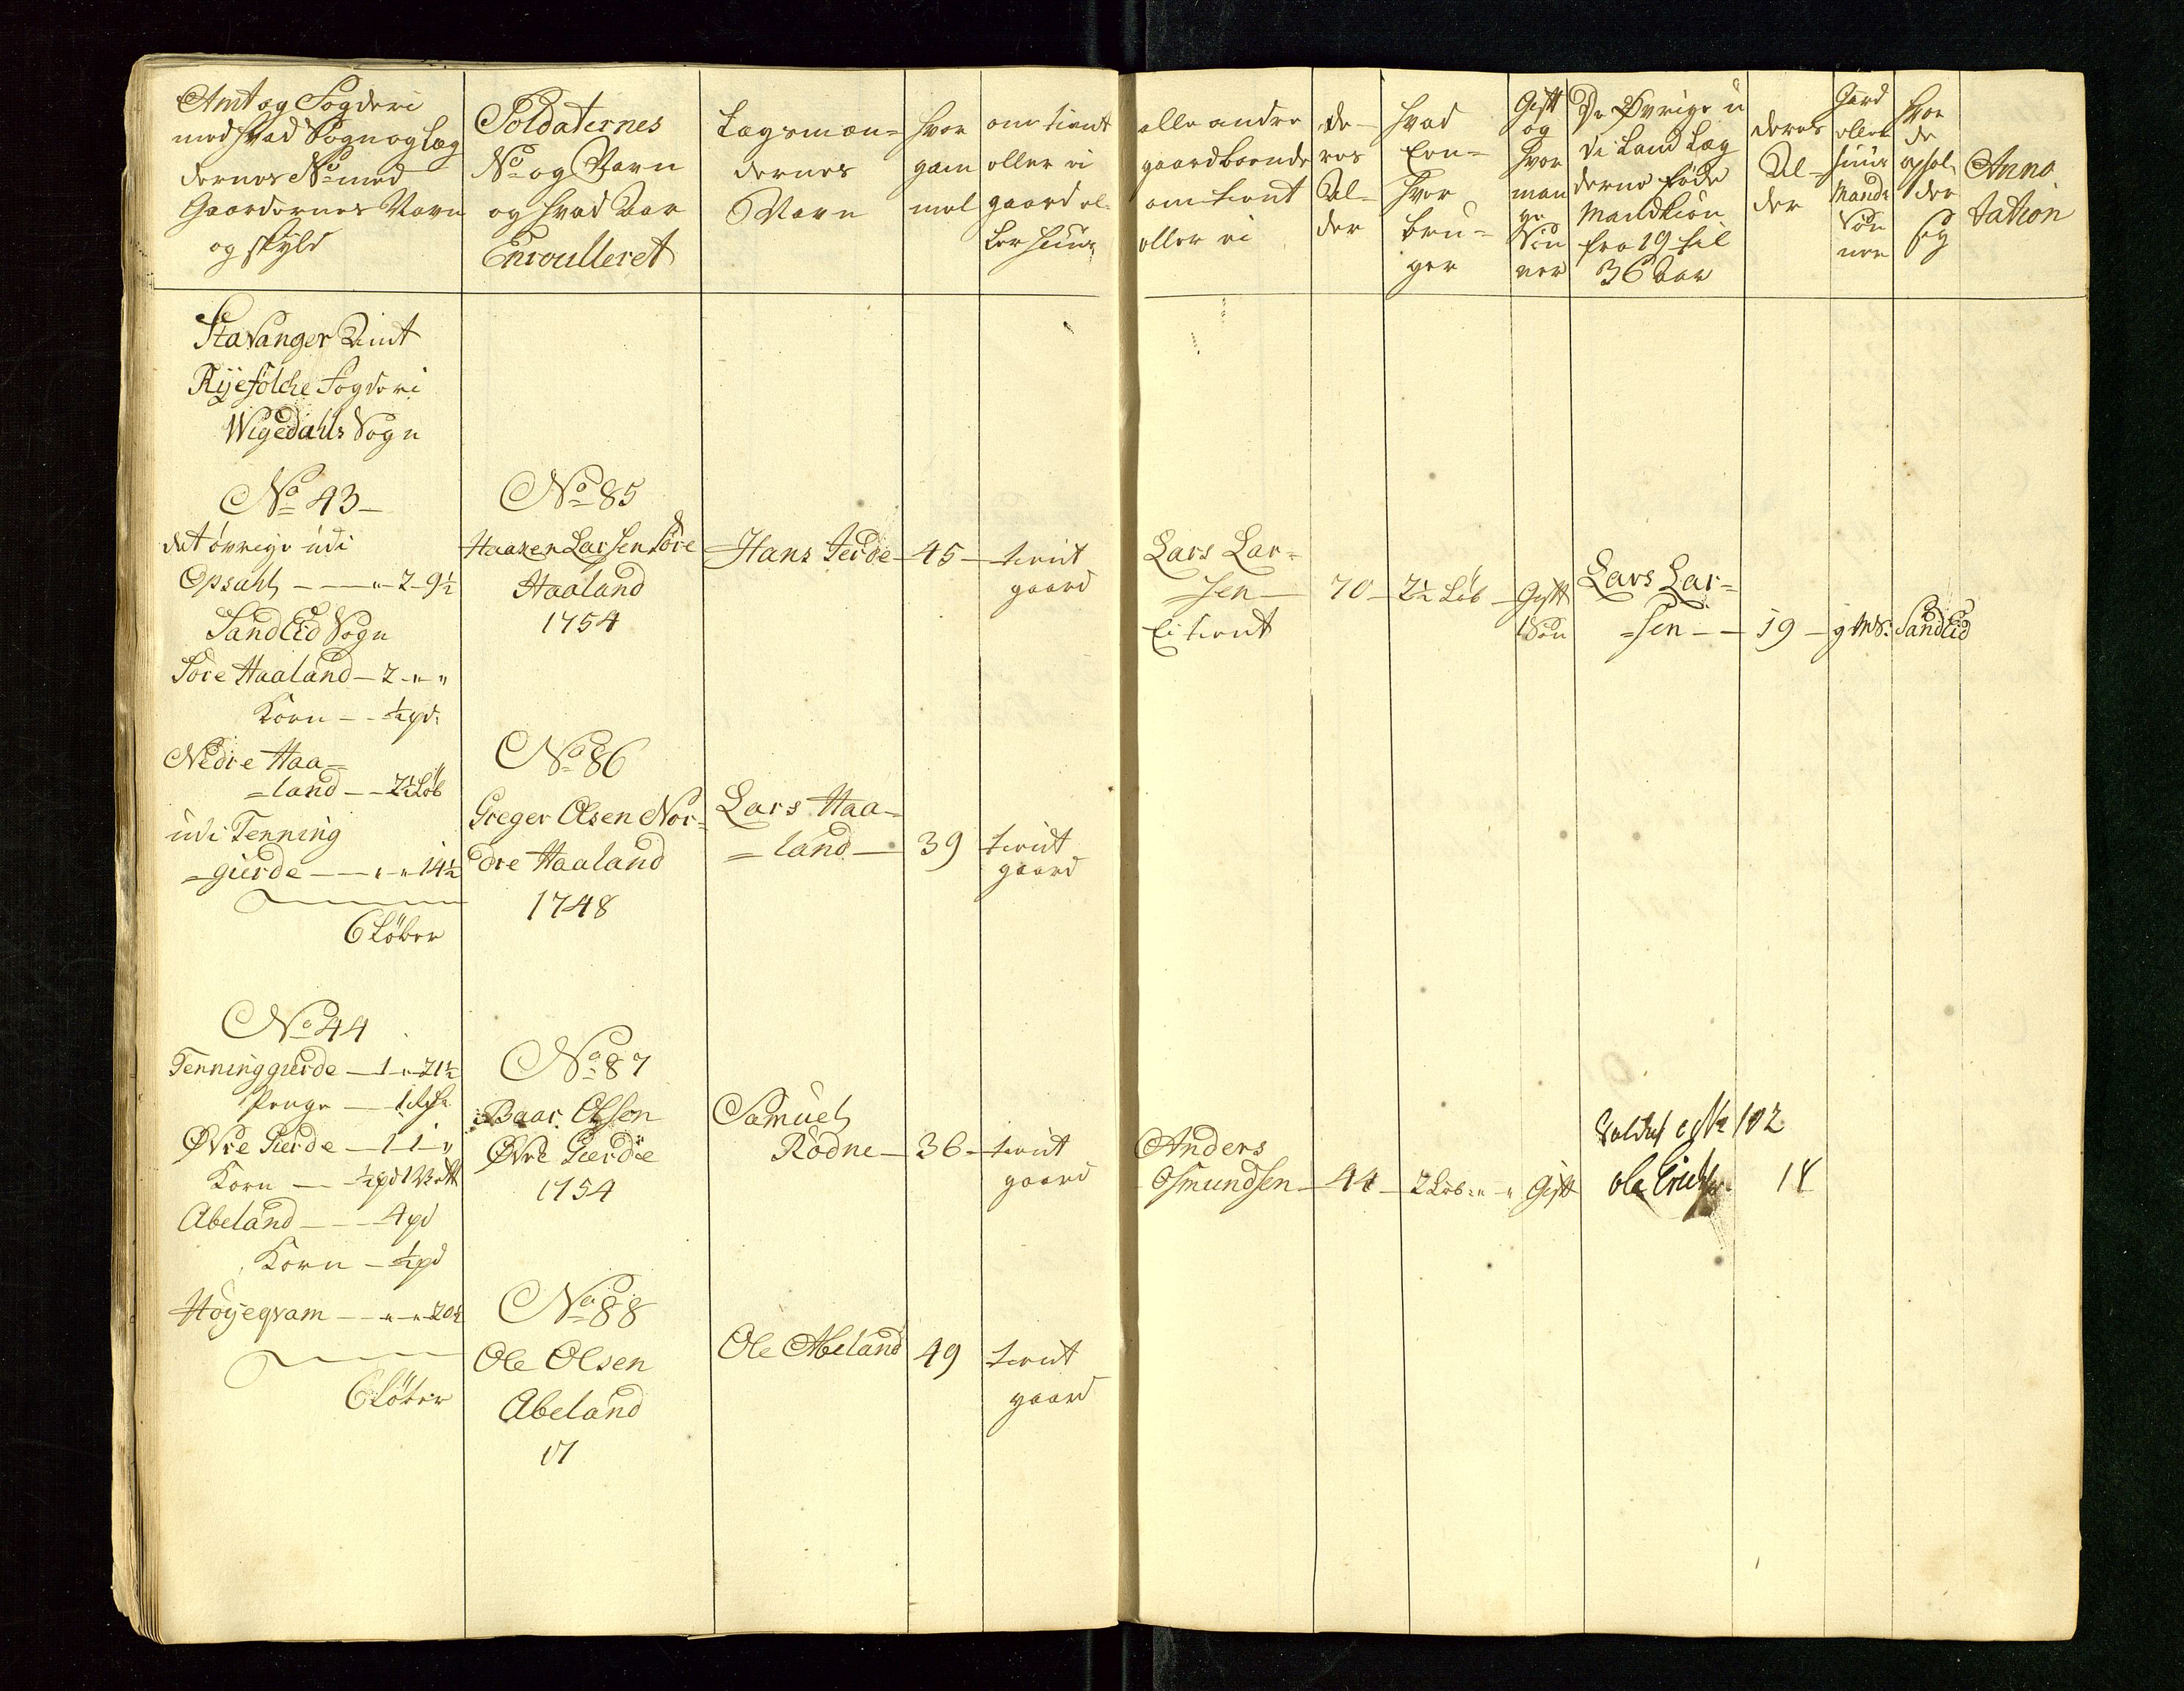 Amt og Fogderi
med hvad Sogn og Læg
dernes No med
Gaardernes Navn
og skyld
Soldaternes
No og Navn
og hvad Aar
Enroulleret
Lægsmæn=
dernes
Navn
hvor
gam
mel
om tient
eller ei
gaard el=
ler huus
alle andre
gaardboende
om tient
eller ei
de=
res
Al=
der
hvad
Een=
hver
bru=
ger
Gift
og
hvor
man
ge
Søn
ner
De Øvrige u
di Land Læg
derne føde
Mandkion
fra 19 til
36 Aar
deres
Al=
der
Gaard
eller
huus
Mands
Søn
ner
hvor
de
ophol=
der
sig
Anno
tation
Stavanger Amt
Ryefölche Fogderi
Wigedahls Sogn
No 43
det övrige udi
Opsahl - - " - 2 - 9½
Sandeid Sogn
Söre Haaland - 2 - " "
Korn - - ½ pd:
Nedre Haa=
=land - - 2½ Löb
udi Tenning
=gierde - - " - " 14½
6 Löber
No 85
Haaken Larsen Söre
Haaland
1754
Hans Ierde - 45 - tient
gaard
Lars Lar=
=sen - 70 - 2½ Löb - Gift
Ei tient 1 Søn
Lars Lar=
=sen - - 19 - g M S: Sandeid
No 86
Greger Olsen Nor=
dre Haaland
1748
Lars Haa=
=land - 39 tient
gaard
No 44
Tenninggierde - 1 - " - 21½
Penge - 1
Øvre Gierde - 1 - 1 - "
Korn - ½ pd 1 Vett
Abeland - - - 4 pd
Korn - ½ pd
Höyeqvam - - " - " - 20½
6 Löber
No 87
Baar Olsen
Øvre Gierde
1754
Samuel
Rödne - 36 - tient
gaard
Anders
Osmundsen - 44 - 2 Löb " - " Gift
Soldat 102
Ole 18
No 88
Ole Olsen
Abeland
17
Ole Abeland 49 tient
gaard